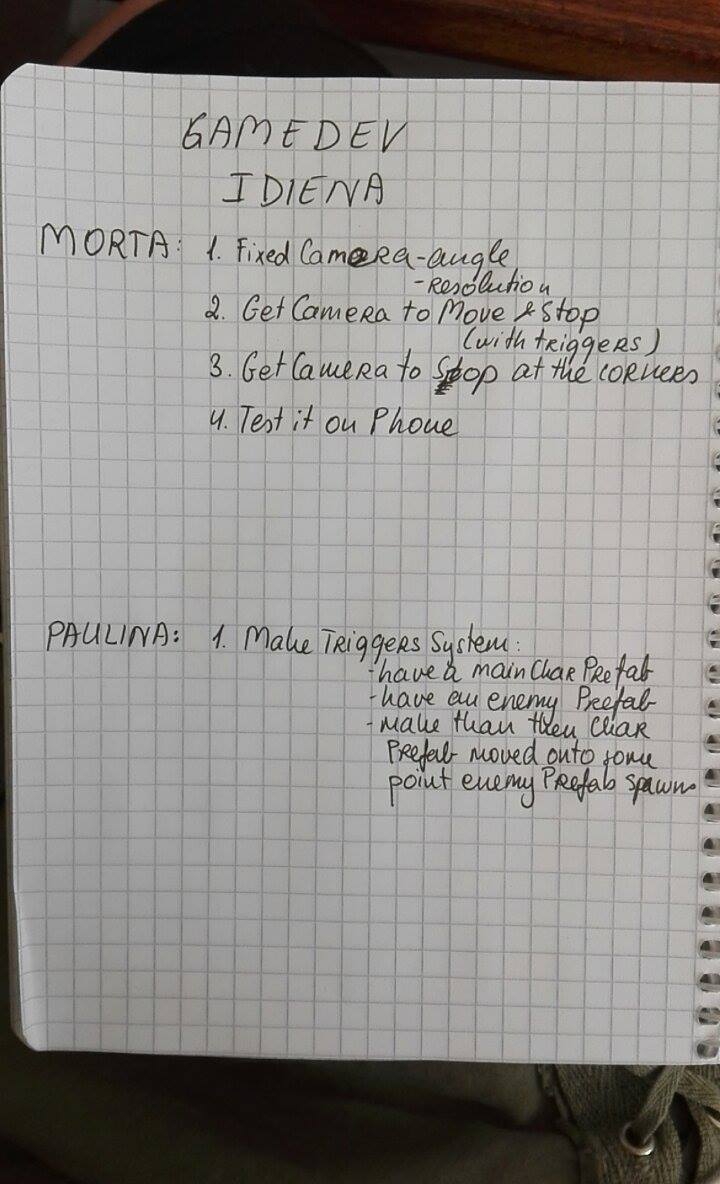 GAMEDEV
I DIENA
MORTA: 1. Fixed Camera-angle
-Resolution
2. Get Camera to Move & Stop
(with triggers)
3. Get Camera to Stop at the corners
4. Test it on Phone
PAULINA: 1. Make Triggers System:
-have a main Char Prefab
-have an enemy Prefab
-make than then Char
Prefab moved onto some
point enemy Prefab spawns